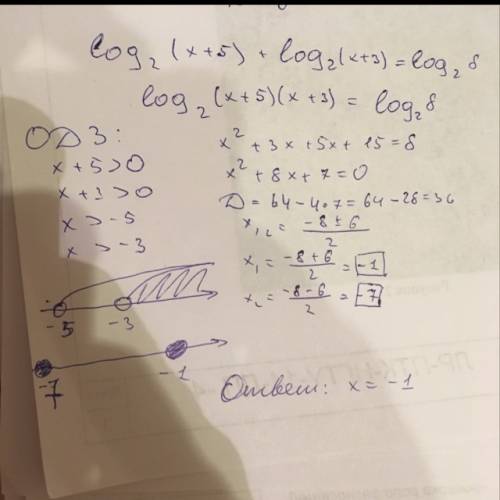 log₂(x+5) + log₂(x+3) = log₂8
log₂(x+5)(x+3) = log₂8
ОДЗ:
x+5>0
x+3>0
x>-5
x>-3
-5 -3
-7 -1
x² + 3x + 5x + 15 = 8
x² + 8x + 7 = 0
D = 64 - 4·7 = 64 - 28 = 36
x₁,₂ = (-8 ± 6)/2
x₁ = (-8+6)/2 = -1
x₂ = (-8-6)/2 = -7
Ответ: x = -1